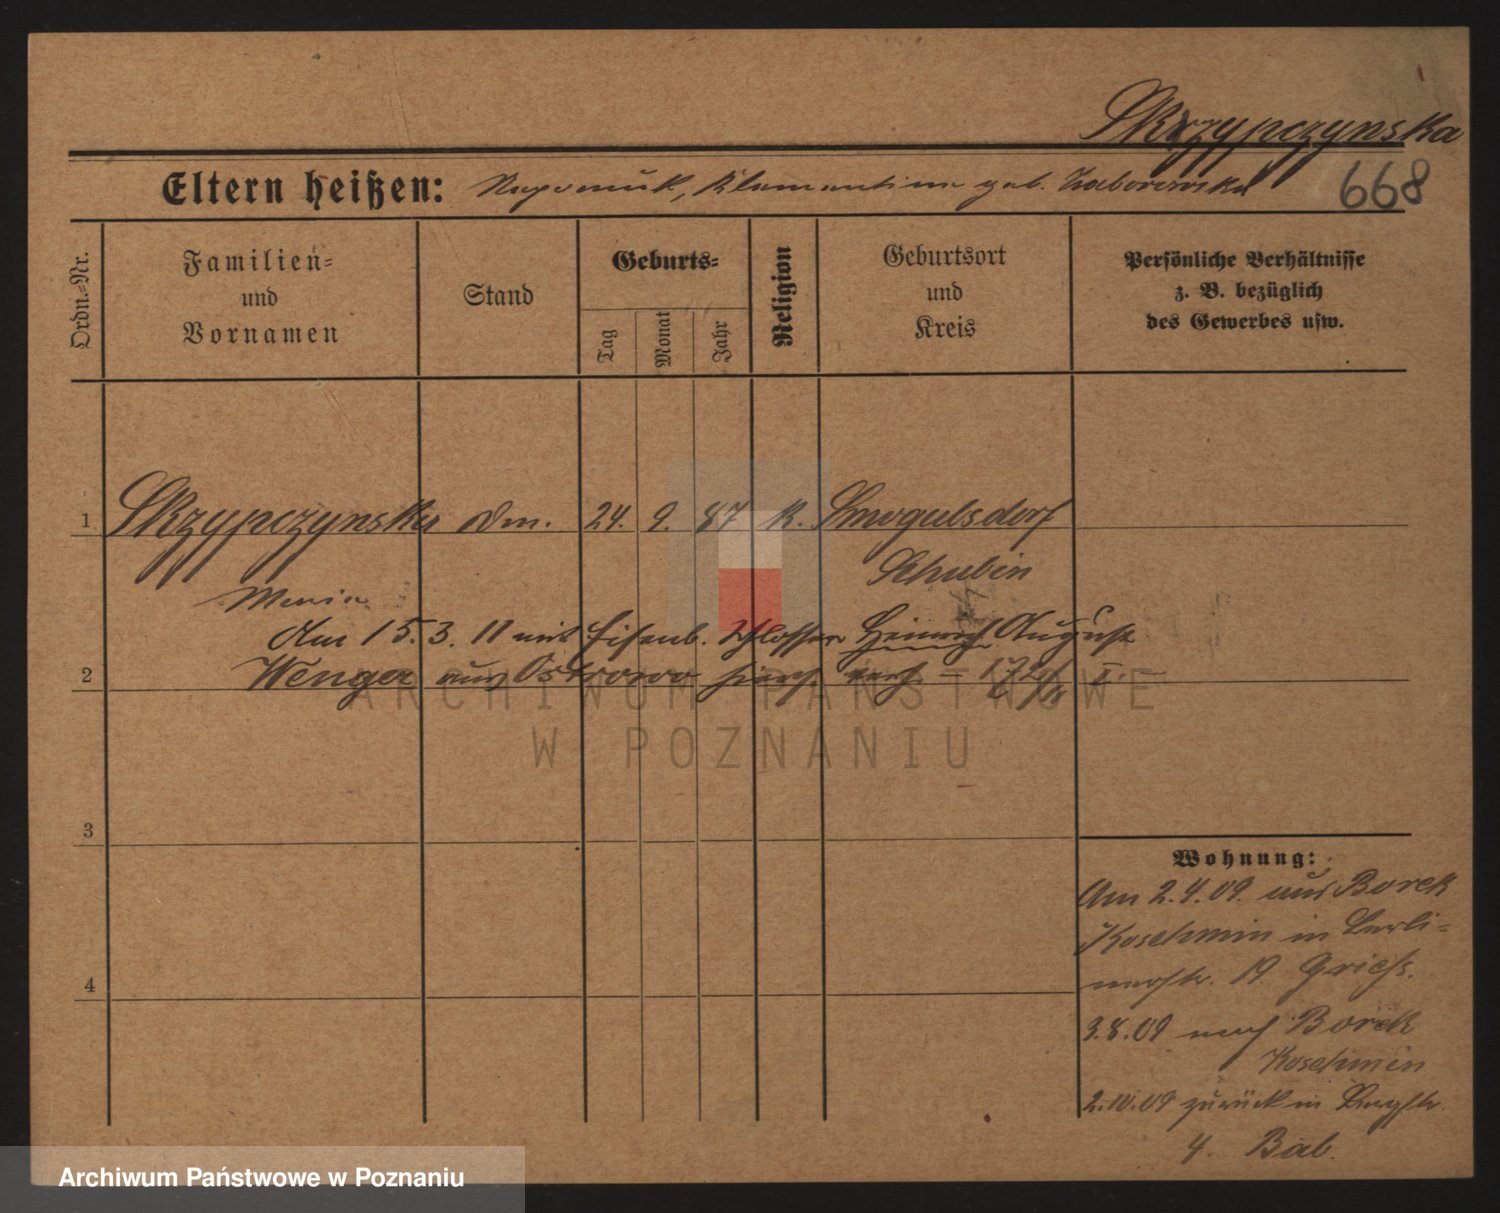 Skrzypczynska
668
Eltern heißen: Nepomuk, Klementine geb. Zaborowska
Ordn.-Nr.
Familien-
und
Vornamen
Stand
Geburts-
Tag
Monat
Jahr
Religion
Geburtsort
und
Kreis
Persönliche Verhältnisse
z. B. bezüglich
des Gewerbes usw.
1 Skrzypczynska Dm. 24. 9. 87 k. Smogulsdorf
Schubin
Maria
Am 15.3.11 mit Eisenb. Schlosser Heinrich August
2 Wenger aus Ostrowo hier verh. I.
3
4
Wohnung:
Am 2.4.09. aus Borek
Koschmin in Berli-
nerstr. 19.
3.8.09 nach Borek
Koschmin
2.10.09 zurück in Bergstr.
4. Bab.
ARCHIWUM PAŃSTWOWE
W POZNANIU
Archiwum Państwowe w Poznaniu